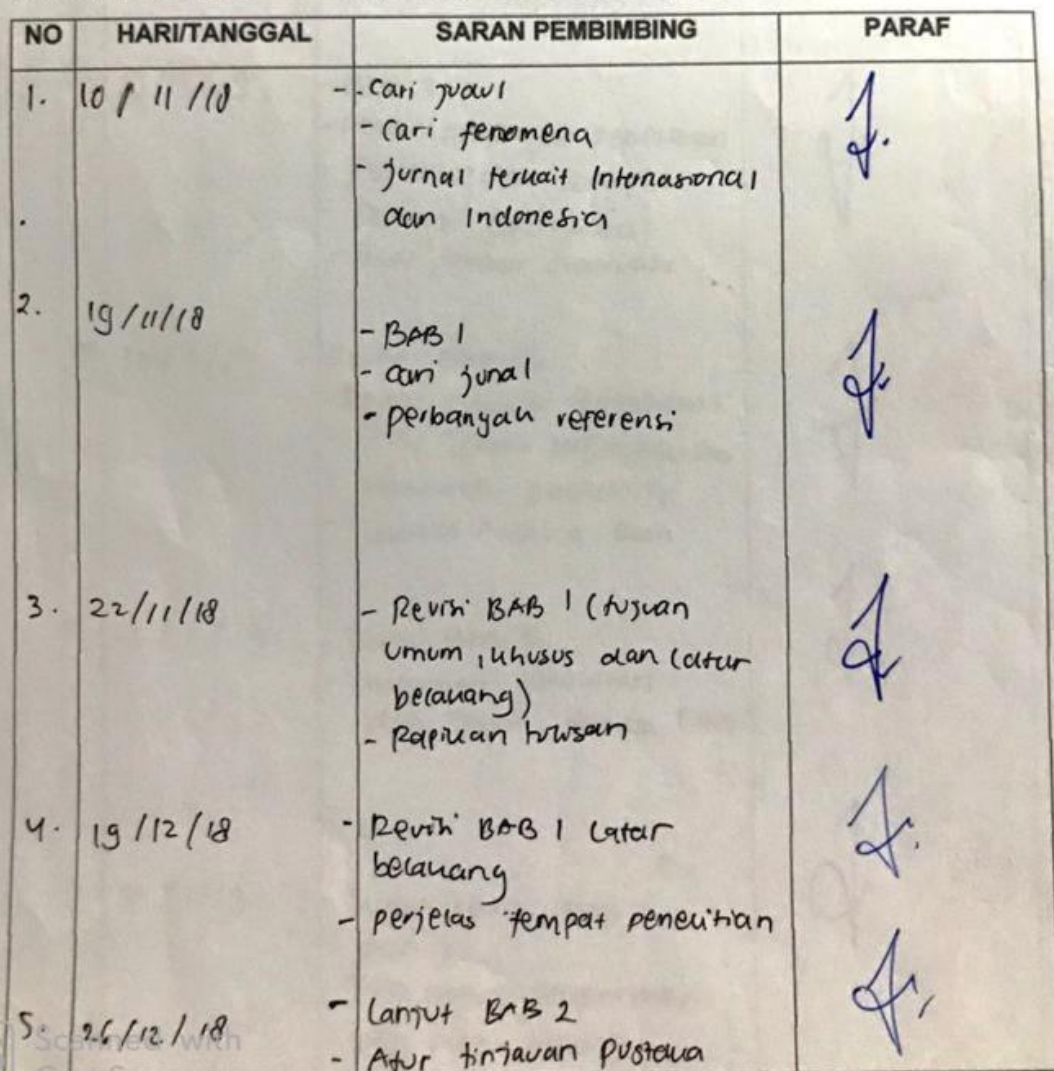 NO HARI/TANGGAL SARAN PEMBIMBING PARAF
1. 10/11/18 - cari judul
- cari fenomena
- jurnal terkait Internasional
dan Indonesia
2. 19/11/18
- BAB 1
- cari junal
- perbanyak referensi
3. 22/11/18 - Revisi BAB 1 (tujuan
umum, khusus dan latar
belakang)
- Rapikan tulisan
4. 19/12/18 - Revisi BAB 1 latar
belakang
- perjelas tempat penelitian
- lanjut BAB 2
5. 26/12/18
- Atur tinjauan pustaka
Scanned with